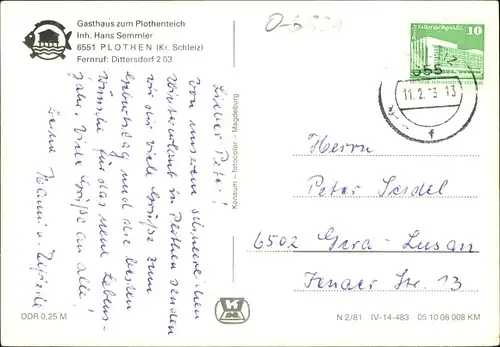 Gasthaus zum Plothenteich
Inh. Hans Semmler
6551 PLOTHEN (Kr. Schleiz)
Fernruf: Dittersdorf 2 03
Lieber Peter!
Von unserem schneereichen
Winterurlaub in Plothen senden
wir dir viele Grüße zum
Geburtstag und die besten
Wünsche für das neue Lebens-
jahr. Viele Grüße an alle!
Deine Hanni u.
Konsum - fotocolor - Magdeburg
DDR 0,25 M
10
655
11.2. 3 13
f
Herrn
Peter Seidel
6502 Gera - Lusan
Jenaer Str. 13
N 2/81 IV-14-483 05 10 08 008 KM